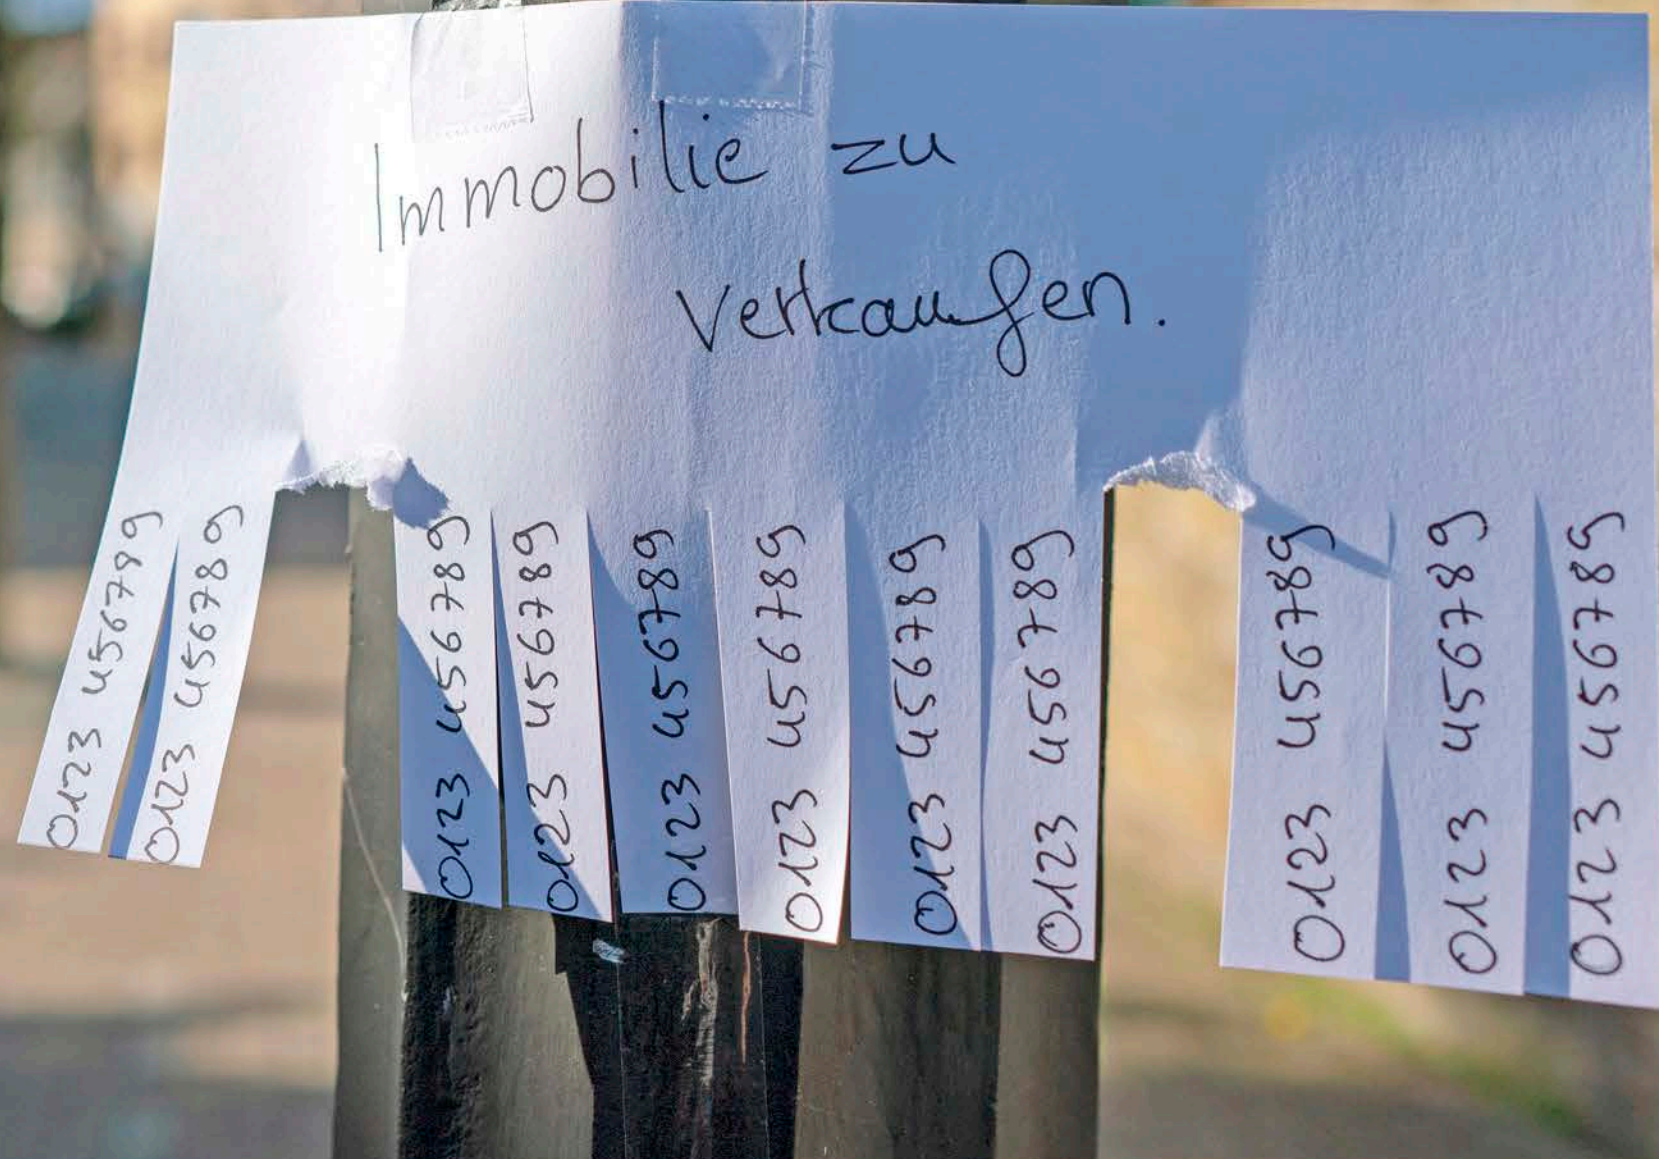 Immobilie zu
verkaufen.
0123 456789
0123 456789
0123 456789
0123 456789
0123 456789
0123 456789
0123 456789
0123 456789
0123 456789
0123 456789
0123 456789